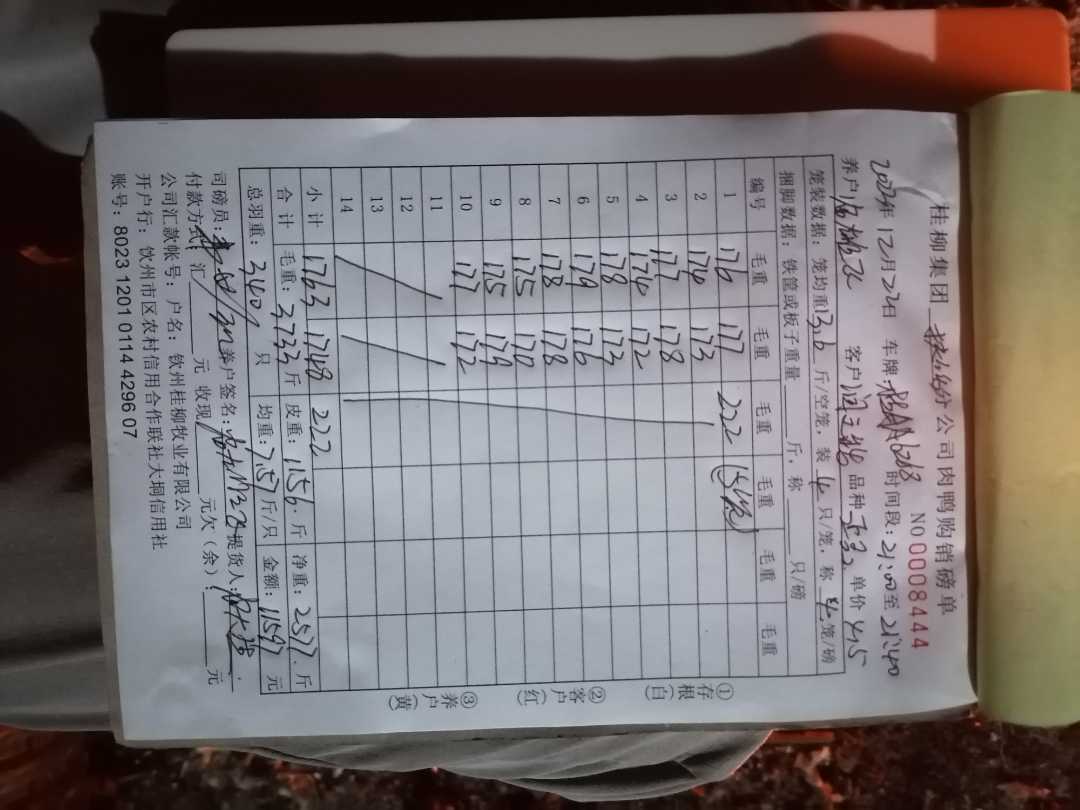 桂柳集团 公司肉鸭购销磅单
NO 00008444
2024年12月22日 车牌: 时间段:21:00至21:40
养户 客户 品种 单价 4.5
笼装数据:笼均重13.6斤/空笼,装4只/笼,称4笼/磅
捆脚数据:铁筐或板子重量 斤,称 只/磅
编号 毛重 毛重 毛重 毛重 毛重 毛重
1 176 177 222 (5笼)
2 174 173
3 177 178
4 174 172
5 178 173
6 179 176
7 178 178
8 175 170
9 175 179
10 177 172
11
12
13
14
小计 1763 1748 222
合计 毛重:3733斤 皮重:1156.斤 净重:2577.斤
总羽重:340 只 均重:7.57斤/只 金额:11597元
司磅员: 养户签名: 提货人:
付款方式:汇 元 收现 元欠(余): 元
公司汇款帐号:户名:钦州桂柳牧业有限公司
开户行:钦州市区农村信用合作联社大垌信用社
账号:8023 1201 0114 4296 07
①存根(白)
②客户(红)
③养户(黄)